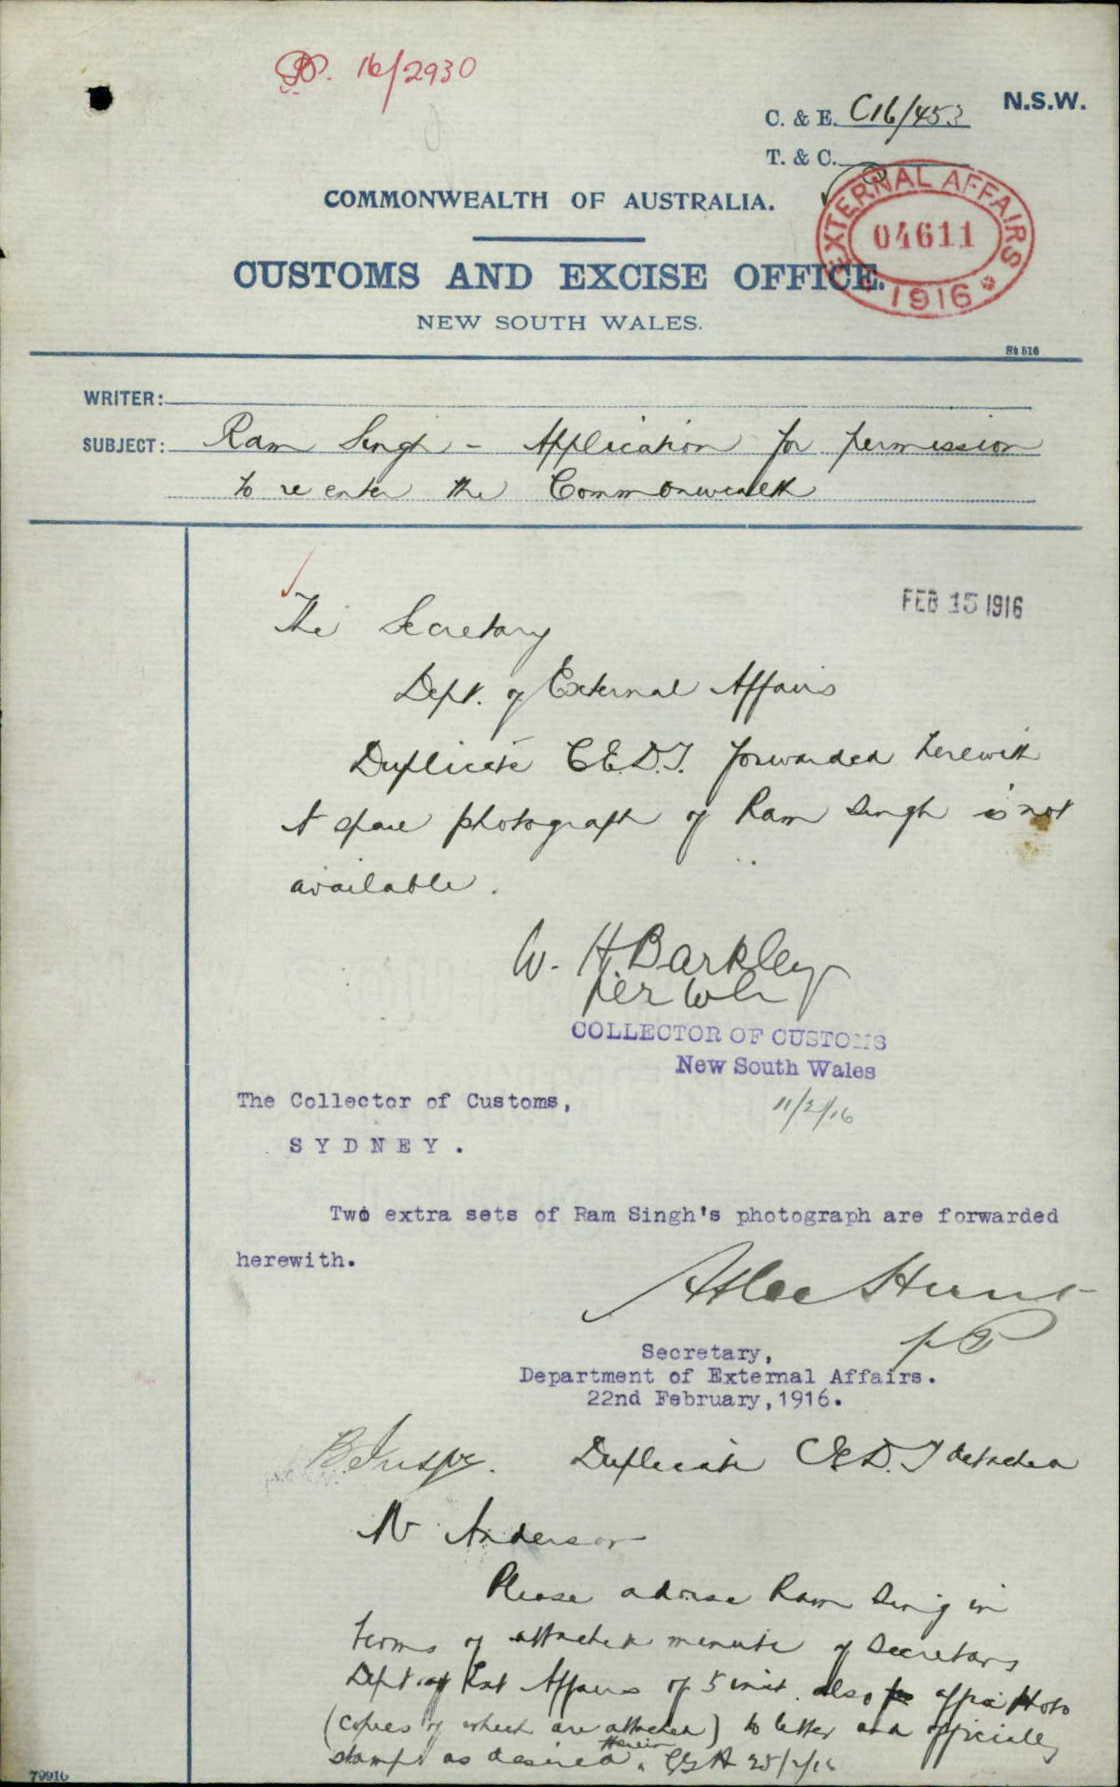 16/2930
N.S.W.
C. & E. C16/453
T. & C.
COMMONWEALTH OF AUSTRALIA.
EXTERNAL AFFAIRS
04611
1916
CUSTOMS AND EXCISE OFFICE.
NEW SOUTH WALES.
WRITER:
SUBJECT: Ram Singh - Application for permission
to re enter the Commonwealth
FEB 15 1916
The Secretary
Dept. of External Affairs
Duplicate C.E.D.T. forwarded herewith
A spare photograph of Ram Singh is not
available.
W. H. Barkley
per
COLLECTOR OF CUSTOMS
New South Wales
11/2/16
The Collector of Customs,
SYDNEY.
Two extra sets of Ram Singh's photograph are forwarded
herewith.
Atlee Hunt
Secretary,
Department of External Affairs.
22nd February, 1916.
Duplicate C.E.D.T detached
Mr Anderson
Please advise Ram Sing in
terms of attached minute of Secretary
Dept of Ext Affairs of 5 inst. also affix photo
(copies of which are attached) to letter and officially
stamp as desired therein. 25/2/16
79916